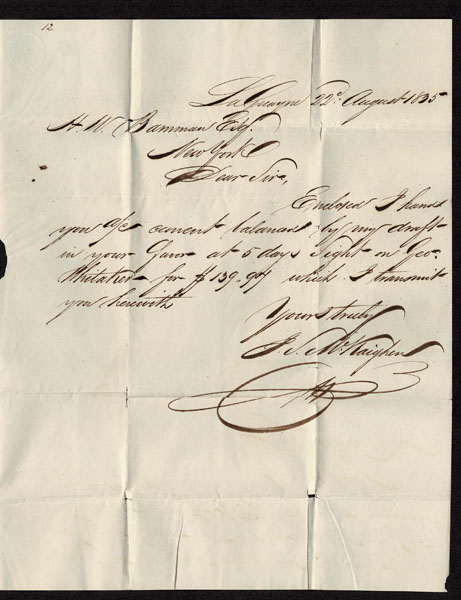 12
La Guayra 22d. August 1835
H. W. Bamman Esq.
New York
Dear Sir,
Enclosed I hand
you a/c current balanced by my draft
in your favor at 5 days sight on Geo.
Whitaker for $139.94 which I transmit
you herewith
Yours truly
J. S. McKaighen